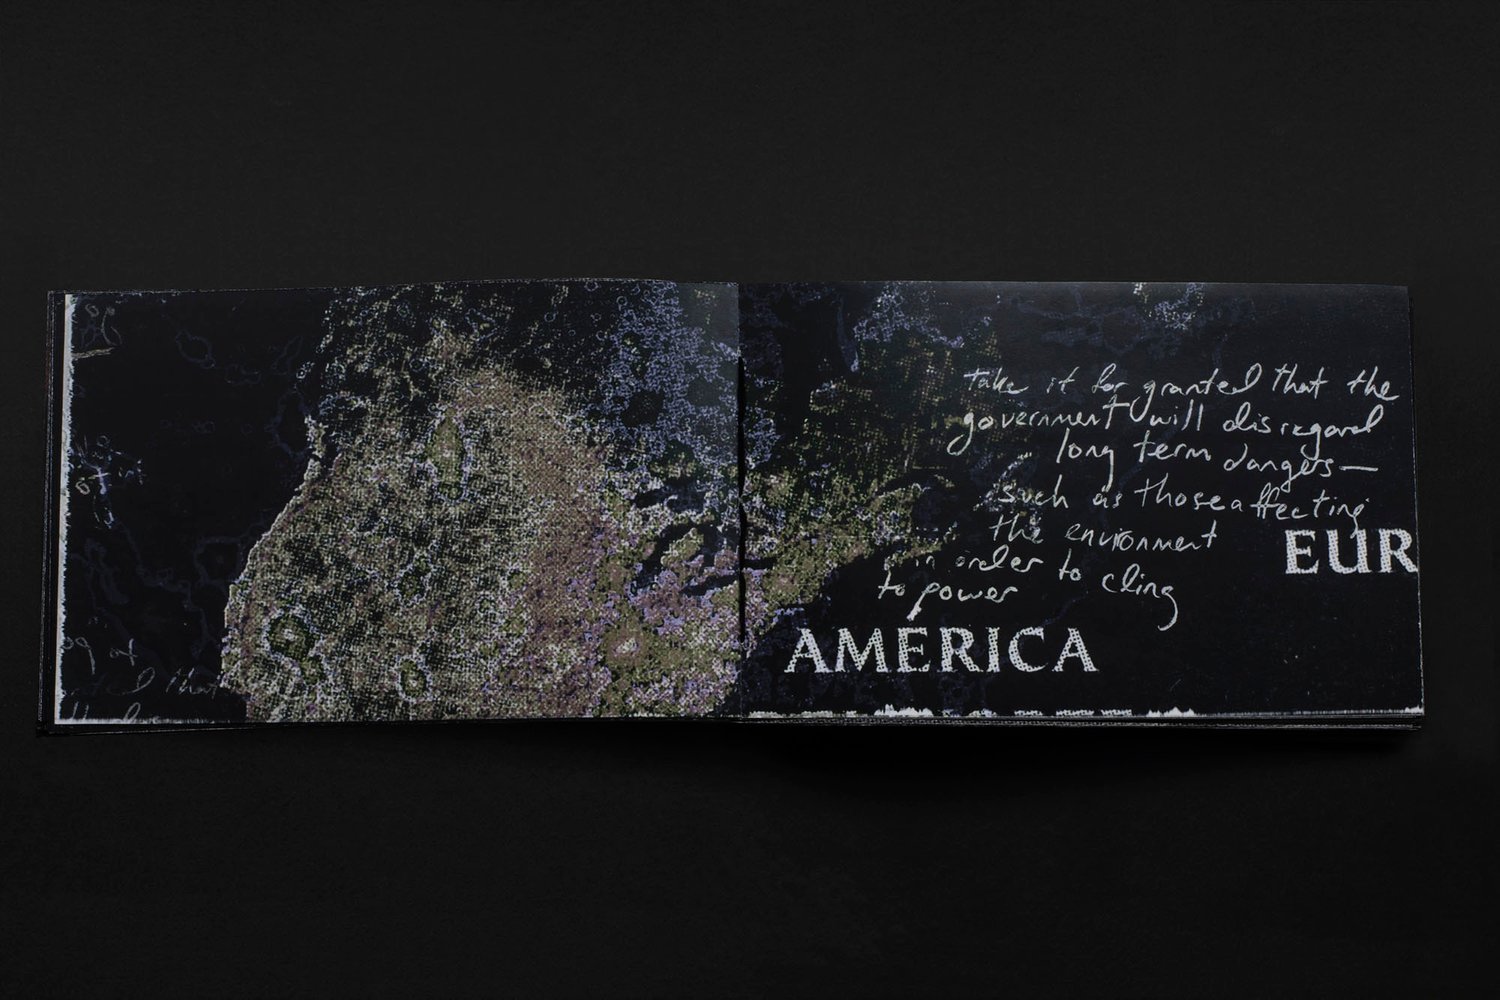 take it for granted that the
government will disregard
long term dangers—
such as those affecting
the environment
in order to cling
to power
EUR
AMERICA
I that